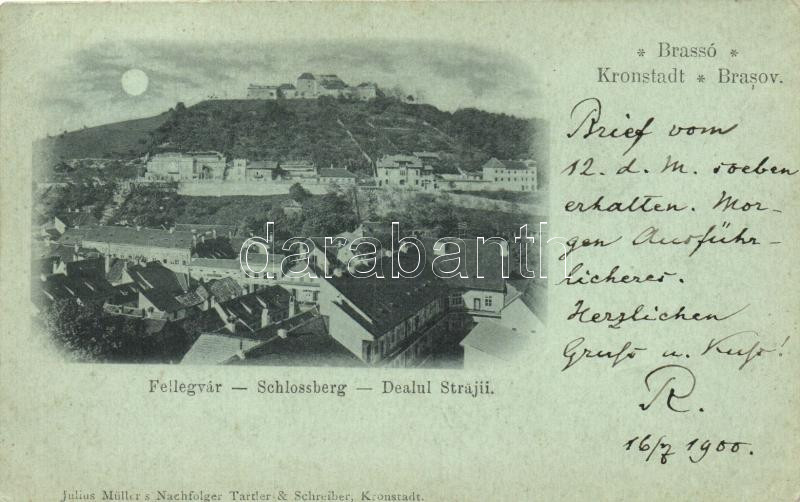 * Brassó *
Kronstadt * Brașov.
Brief vom
12. d. M. soeben
erhalten. Mor-
gen Ausführ-
licheres.
Herzlichen
Gruss u. Kuss!
R.
16/7 1900.
darabanth.com
Fellegvár — Schlossberg — Dealul Străjii.
Julius Müller's Nachfolger Tartler & Schreiber, Kronstadt.